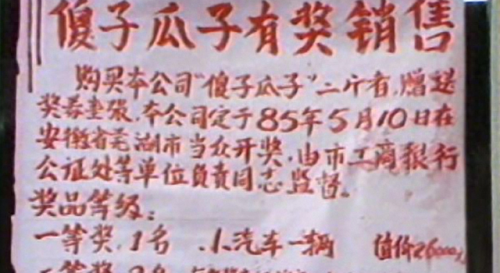 傻子瓜子有奖销售
购买本公司“傻子瓜子”二斤者，赠送
奖券壹张，本公司定于85年5月10日在
安徽省芜湖市当众开奖，由市工商银行
公证处等单位负责同志监督。
奖品等级：
一等奖，1名 小汽车一辆 值价26000元